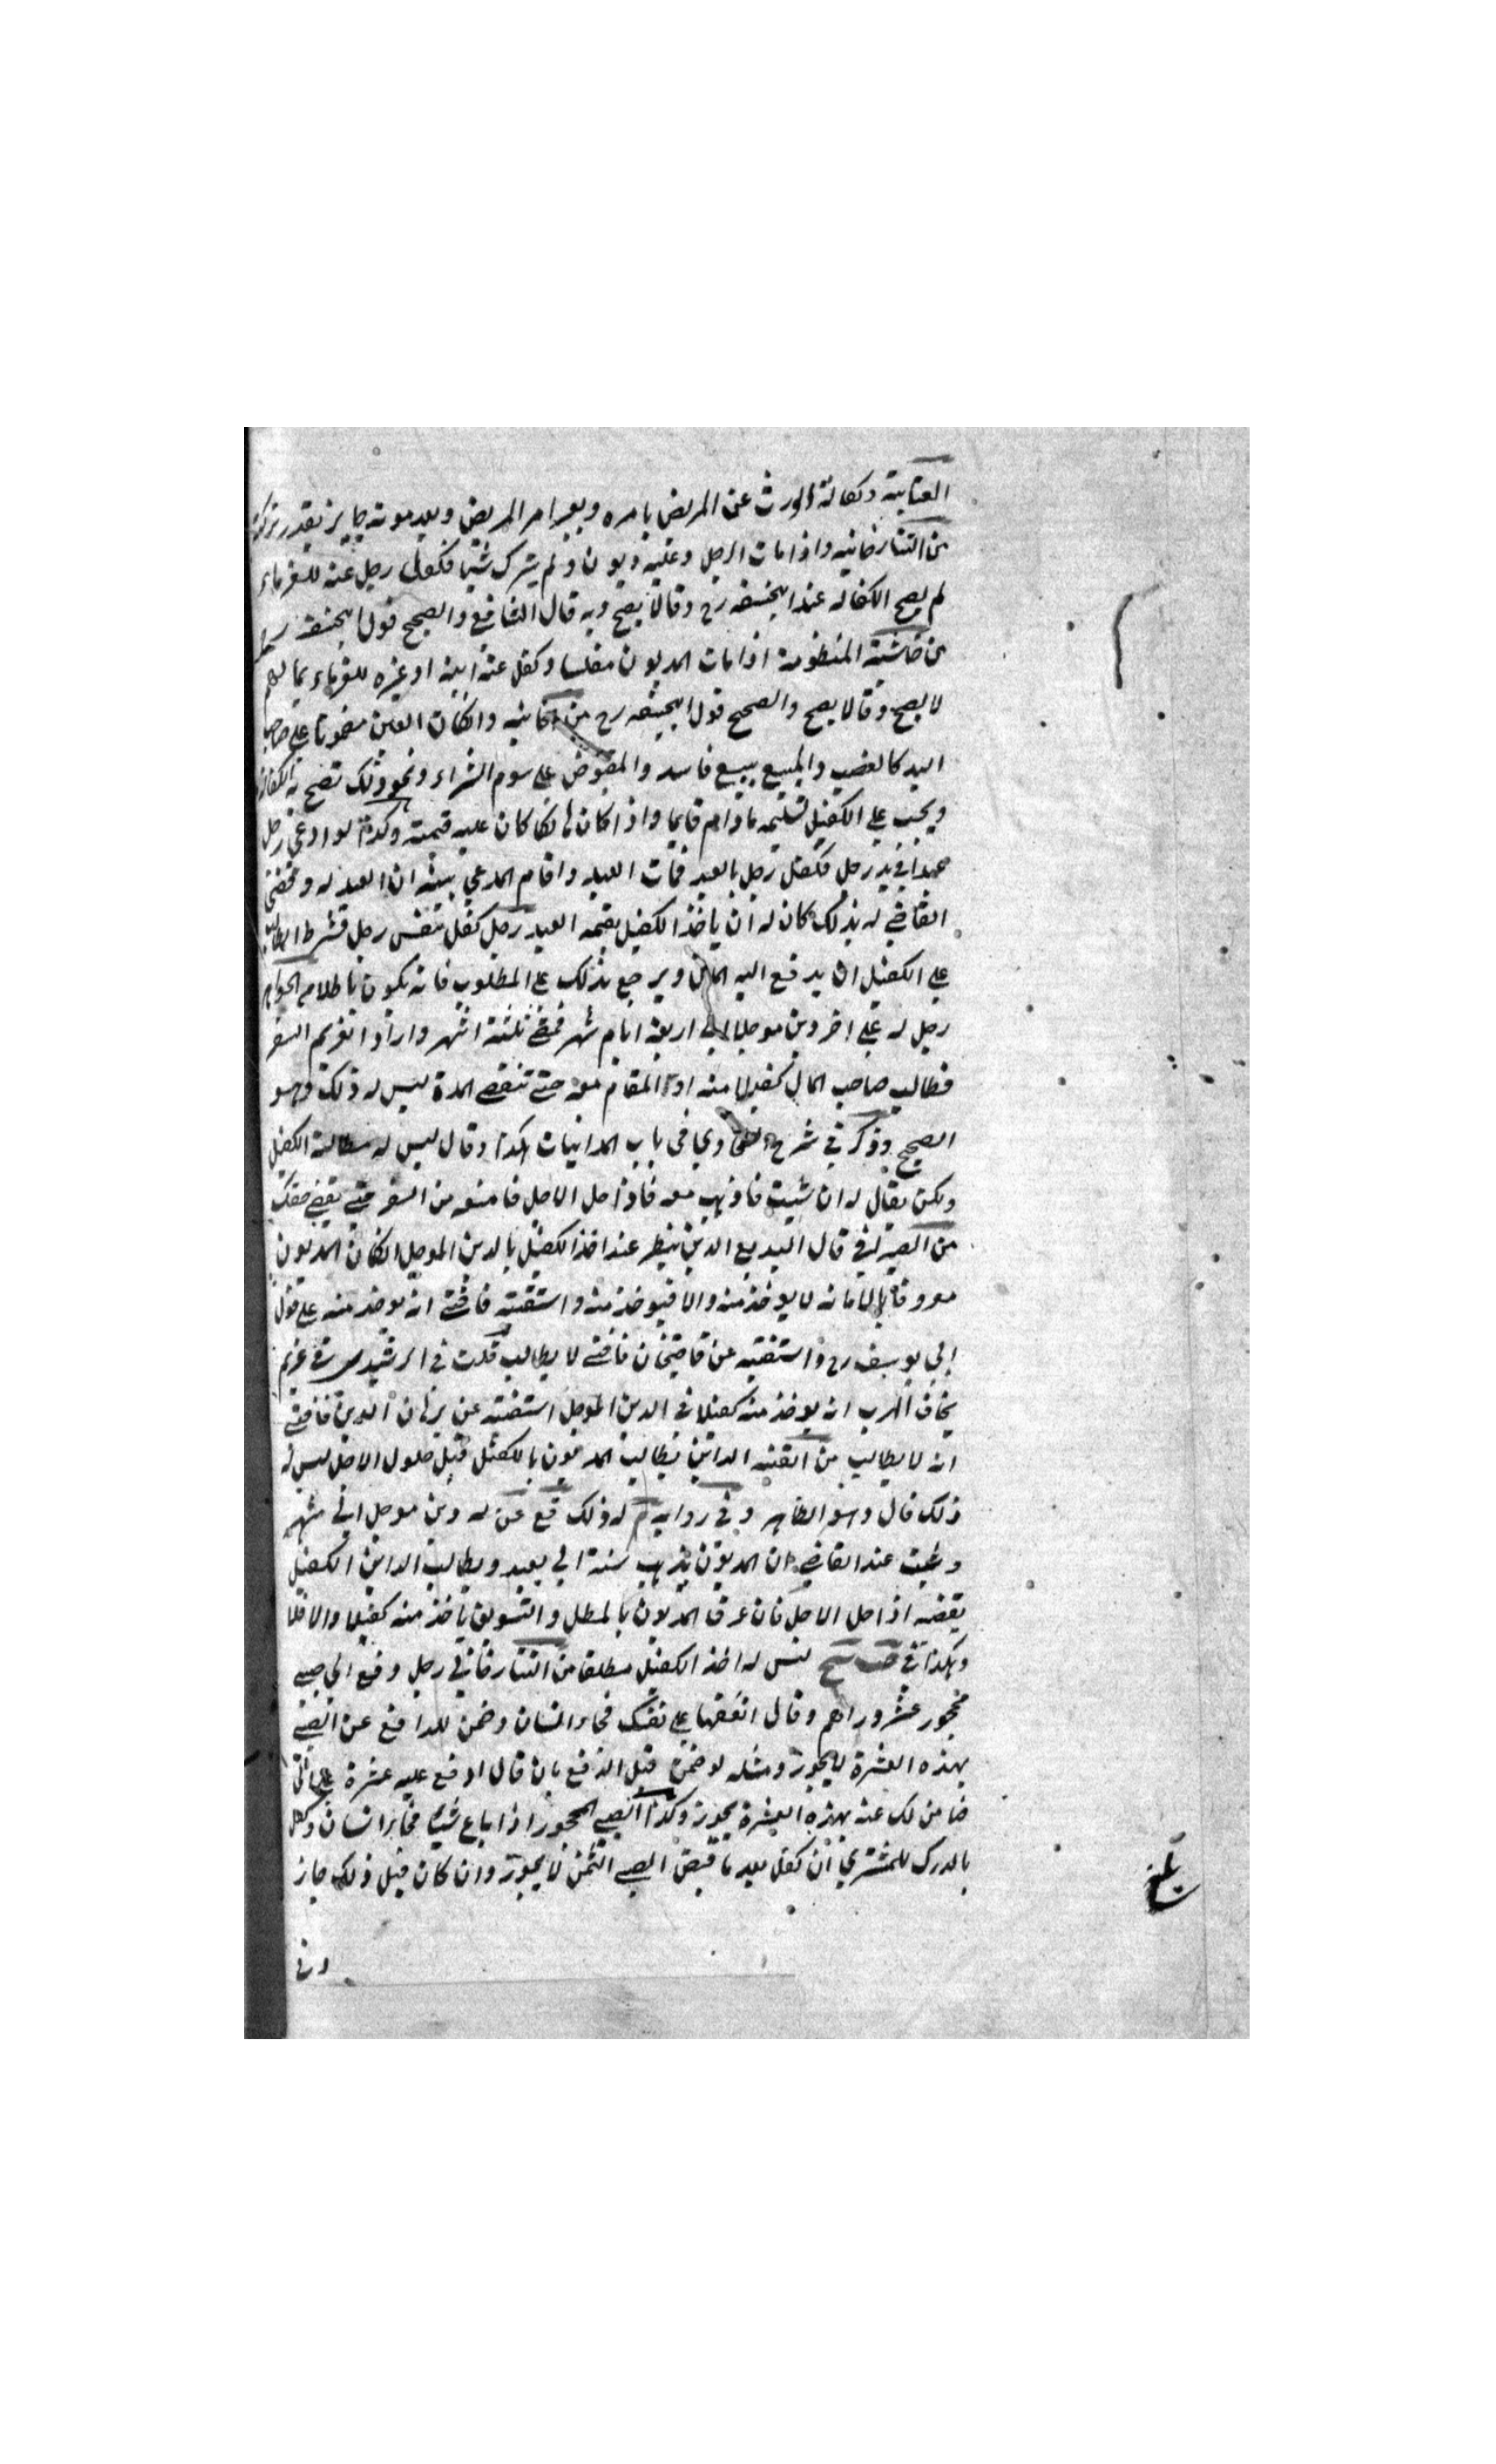 العتابية وكفالة الوارث عن المريض بامره وبغير امر المريض وبعد موته جايز بقدر تركته
من التتارخانيه واذا مات الرجل وعليه ديون ولم يترك شيئا فكفل رجل عنه للغرماء
لم يصح الكفاله عند ابيحنيفه رح وقالا يصح وبه قال الشافعي والصحيح قول ابيحنيفه
من حاشية المنظومة اذا مات المديون مفلسا وكفل عنه ابنه او غيره للغرماء بما لهم
لا يصح وقالا يصح والصحيح قول ابيحنيفه رح من الخانيه وانكان العين مضمونا على صاحب
اليد كالغصب والمبيع ببيع فاسد والمقبوض على سوم الشراء ونحو ذلك تصح به الكفالة
ويجب على الكفيل تسليمه مادام قايما واذا كان هالكا كان عليه قيمته وكذا لو ادعى رجل
عبدا في يد رجل فكفل رجل بالعبد فمات العبد واقام المدعي بينة ان العبد له وقضى
القاضي له بذلك كان له ان ياخذ الكفيل بقيمه العبد رجل كفل بنفس رجل فشرط الطالب
على الكفيل ان يدفع اليه المال ويرجع بذلك على المطلوب فانه يكون باطلا من الجواهر
رجل له على اخر دين موجل الى اربعة اشهر فمضى ثلثة اشهر واراد الغريم السفر
فطالب صاحب المال كفيلا منه او المقام معه حتى تنقضي المدة ليس له ذلك وهو
الصحيح وذكر في شرح الطحاوي في باب المداينات هكذا وقال ليس له مطالبة الكفيل
ولكن يقال له ان شيت فاذهب معه فاذا حل الاجل فامنعه من السفر حتى يقضي حقك
من الصيرفي قال البديع الدين ينظر عند اخذ الكفيل بالدين الموجل انكان المديون
معروفا بالامانه لا يوخذ منه والا فيوخذ منه واستفتيته فافتى انه يوخذ منه على قول
ابي يوسف رح واستفتيه عن قاضيخان فافتى لا يطالب قلت في الرشيدي في غريم
يخاف الهرب انه يوخذ منه كفيلا في الدين الموجل استفتيه عن برهان الدين فافتى
انه لا يطالب من القنيه الداين يطالب المديون بالكفيل قبل حلول الاجل ليس له
ذلك قال وهو الظاهر وفي روايه م له ذلك قع عن له دين موجل الى شهر
وثبت عند القاضي ان المديون يذهب سنة الى بعيد ويطالب الداين الكفيل
يقضه اذا حل الاجل فان عرف المديون بالمطل والتسويق ياخذ منه كفيلا والا فلا
وهكذا في ليس له اخذ الكفيل مطلقا من التتارخاني رجل دفع الى صبي
محجور عشر دراهم وقال انفقها على نفسك فجاء انسان وضمن للدافع عن الصبي
بهذه العشرة لا يجوز ومثله لو ضمن قبل الدفع بان قال ادفع عليه عشرة على اني
ضامن لك عنه بهذه العشرة يجوز وكذا الصبي المحجور اذا باع شيئا فجاء انسان وكفل
بالدرك للمشتري ان كفل بعد ما قبض الصبي الثمن لا يجوز وان كان قبل ذلك جاز
بلغ
وفي